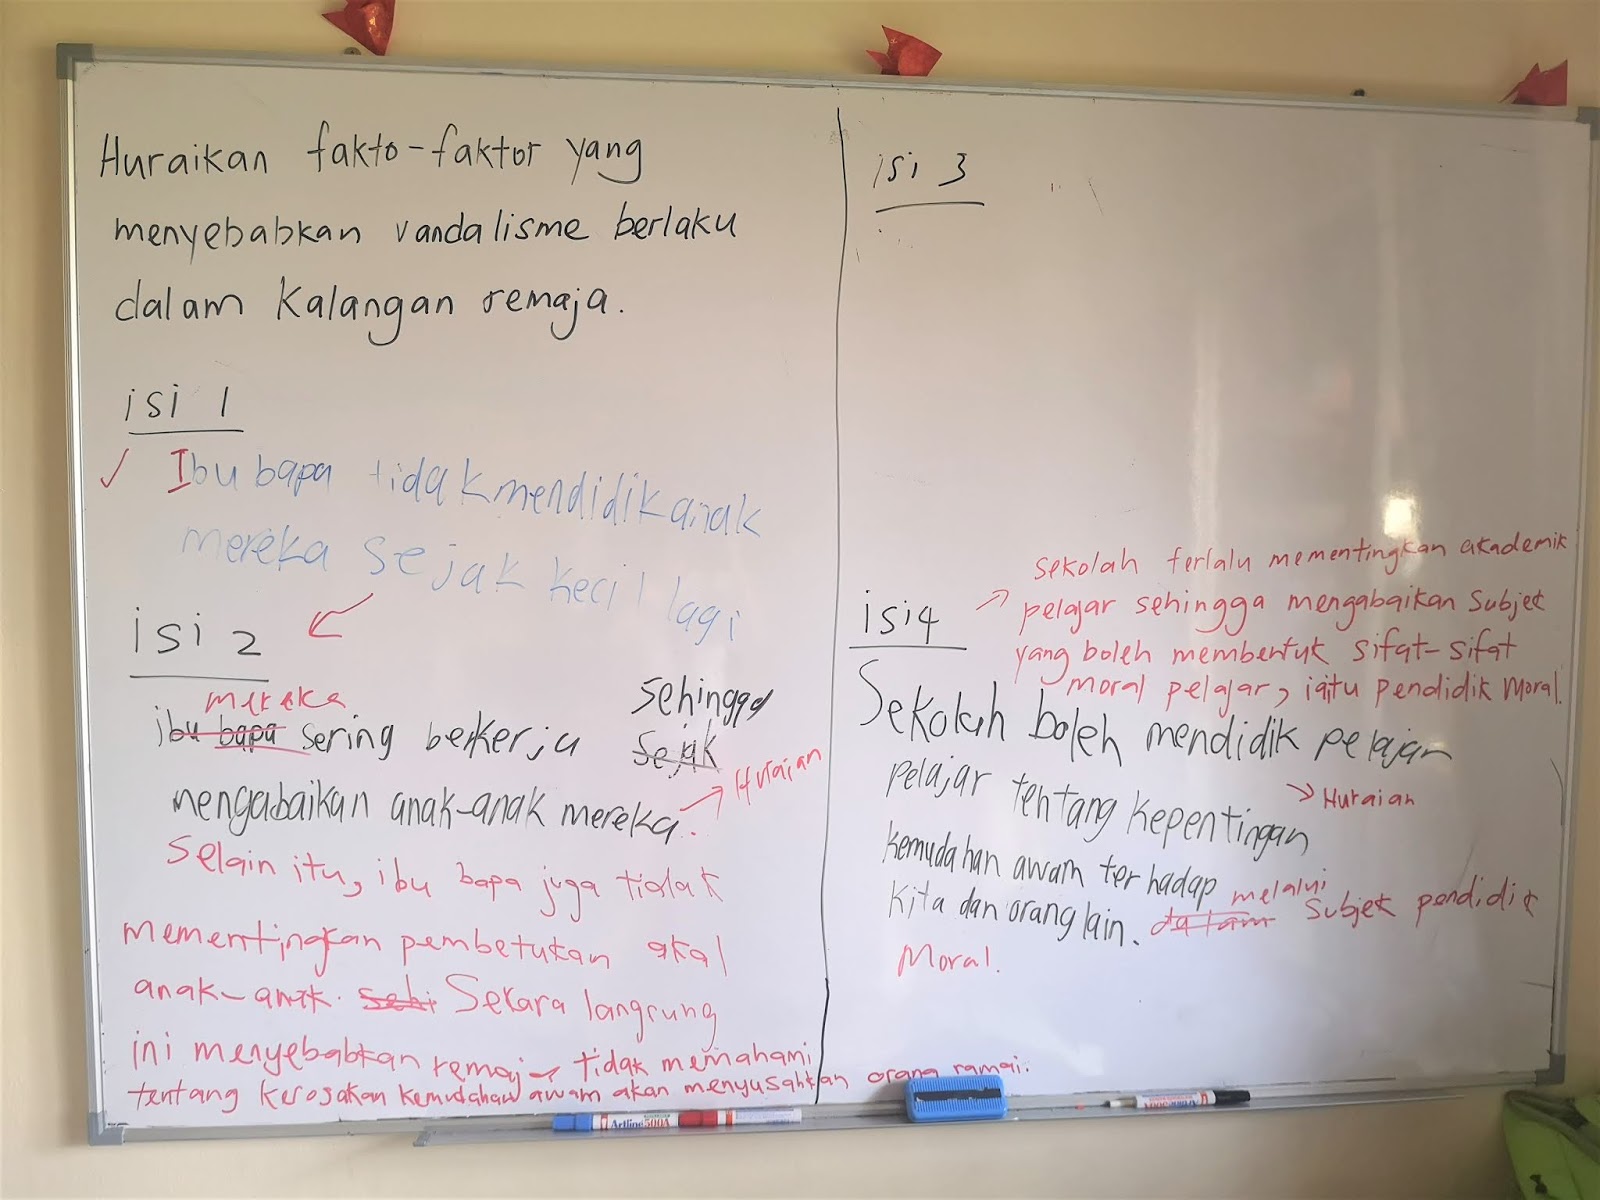 Huraikan fakto-faktor yang
menyebabkan vandalisme berlaku
dalam kalangan remaja.
isi 1
Ibu bapa tidak mendidik anak
mereka sejak kecil lagi
isi 2
mereka
ibu bapa sering berkerja sehingga
sejak
mengabaikan anak-anak mereka. Huraian
Selain itu, ibu bapa juga tidak
mementingkan pembetukan akal
anak-anak. sehi Sekara langsung
ini menyebabkan remaja tidak memahami
tentang kerosakan kemudahan awam akan menyusahkan orang ramai.
isi 3
isi 4
sekolah terlalu mementingkan akademik
pelajar sehingga mengabaikan subjek
yang boleh membentuk sifat-sifat
moral pelajar, iaitu pendidik moral.
Sekolah boleh mendidik pelajar
pelajar tentang kepentingan
Huraian
kemudahan awam terhadap
kita dan orang lain. dalam melalui subjek pendidik
Moral.
Artline 500A